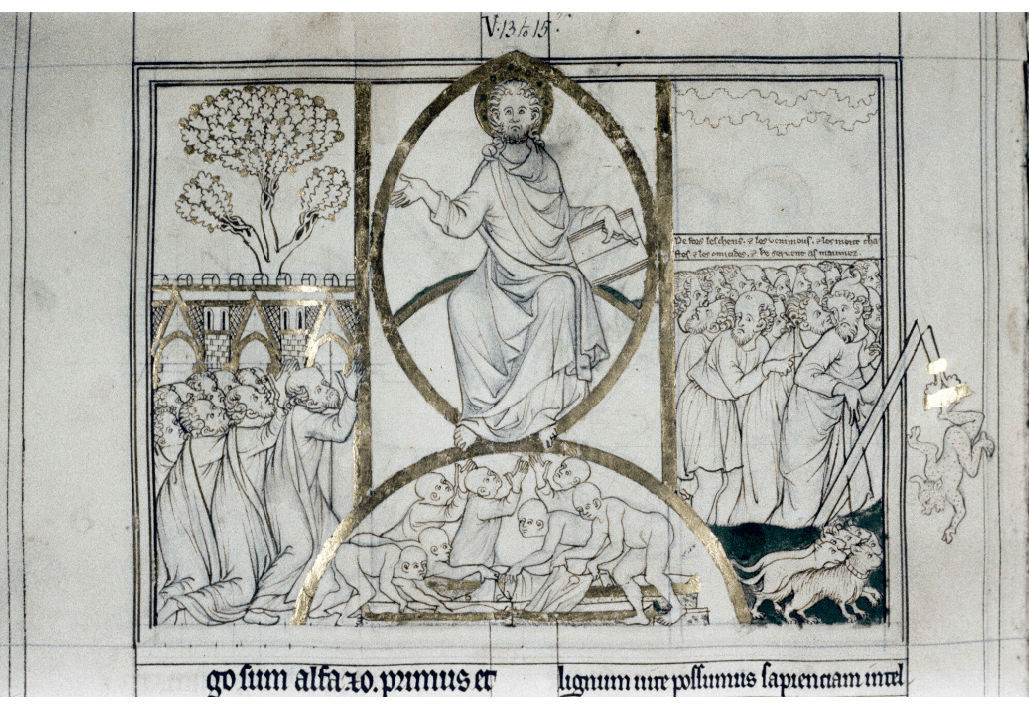 V. 13 to 15.
De fors les chens. & les venimous. & les morte cha
stos. & les omicides. & ke servent as maumez.
go sum alfa & o. primus et
lignum uite possumus sapienciam intel